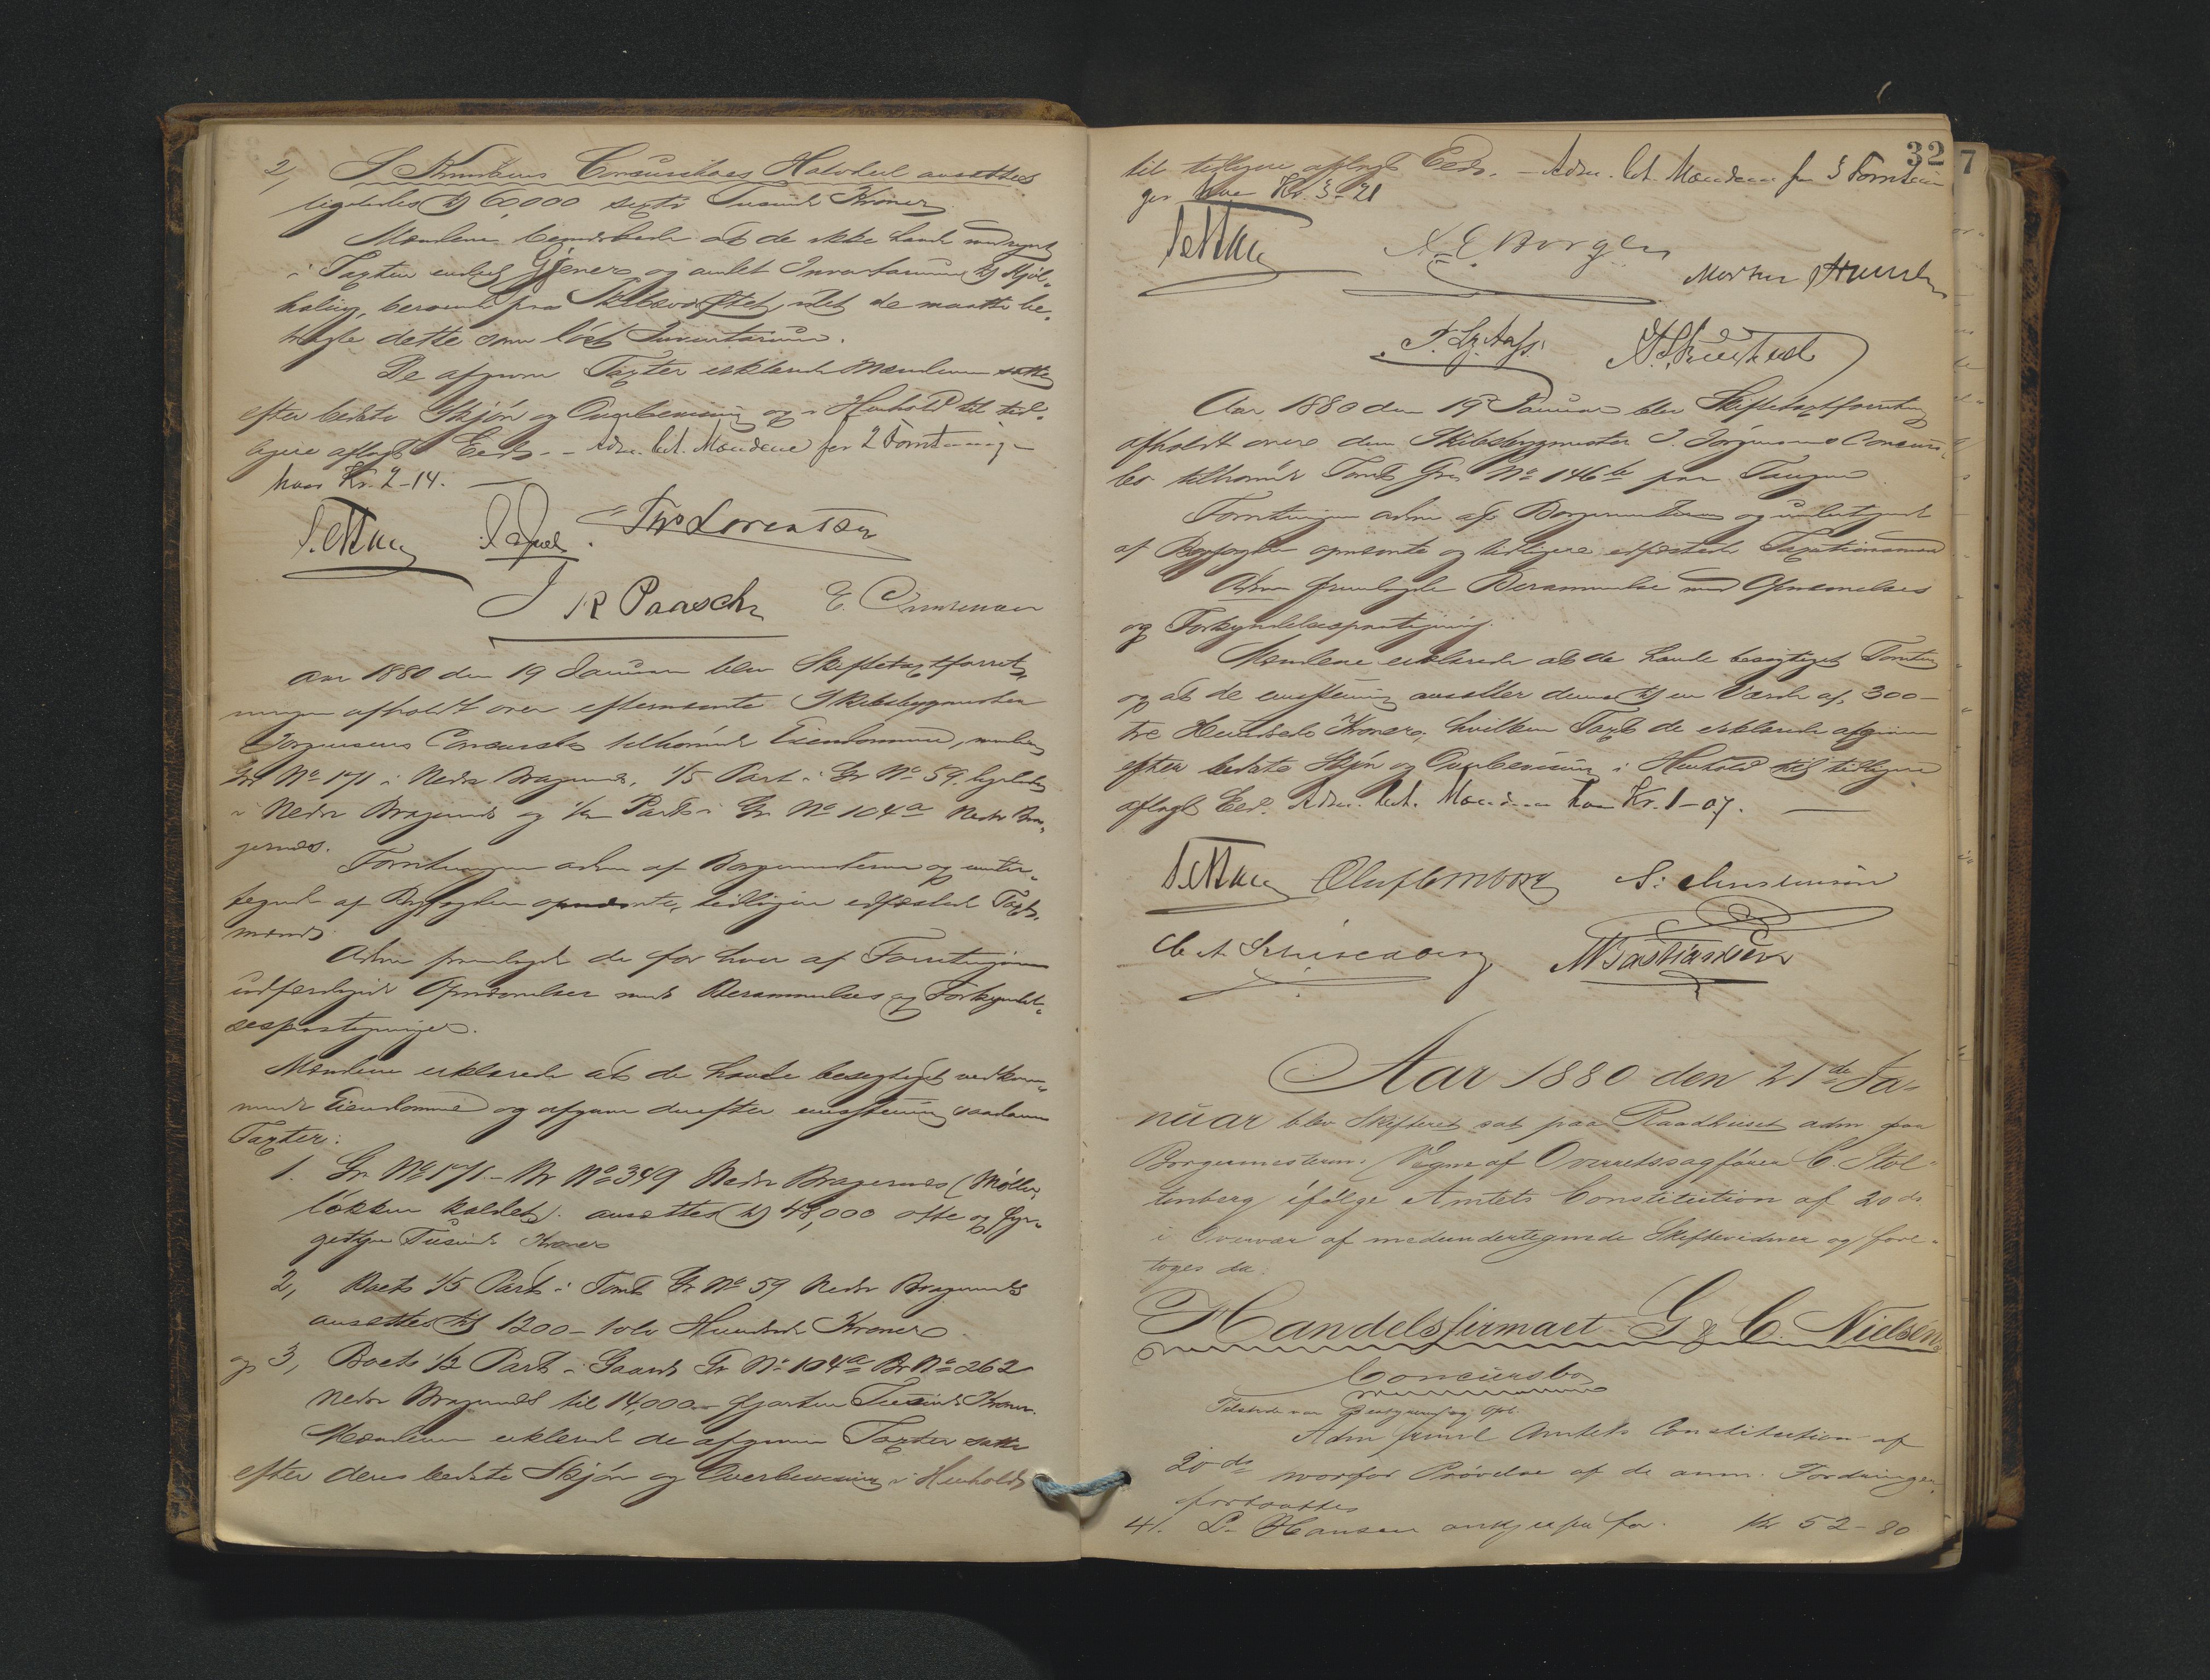 2,
Concursboes Halvdeel ansættes
ligeledes til 60,000 sexti Tusinde Kroner
Mændene bemærkede at de ikke havde medregnet
i Taxten endeel og andet Inventarium til Kjøl-
haling, beroende paa Skibsværftet, idet de maatte be-
tragte dette som löst Inventarium.
De afgivne Taxter erklærede Mændene satte
efter bedste Skjön og Overbeviisning og i Henhold til tid-
ligere aflagt Eed. – Adm. bet. Mændene for 2 Forretninger
hver Kr. 2-14.
Ths Lorentsen
J R Paasche E.
Aar 1880 den 19 Januar blev Skiftetaxtforret-
ningen afholdt over efternævnte Skibsbygmester
Jörgensens Concursbo tilhörende Eiendomme, nemlig
Gr No 171 i Nedre Bragernes, 1/5 Part i Gr No 59 ligeledes
i Nedre Bragernes og 1/2 Part i Gr No 104a Nedre Bra-
gernæs.
Forretningen adm af Borgermesteren og under-
tegnede af Byfogden opnævnte, tidligere edfæstede Taxt-
mænd
Adm fremlagde de for hver af Forretningerne
udfærdigede Opnævnelser med Berammelses og Forkyndel-
sespaategninger.
Mændene erklærede at de havde besigtiget vedkom-
mende Eiendomme og afgave derefter eenstemmig saadanne
Taxter:
1. Gr. No 171 – Br No 349 Nedre Bragernes (Möller-
løkken kaldet). ansættes til 48,000 otte og fyr-
getyve Tusinde Kroner
2, Boets 1/5 Part i Tomt Gr No 59 Nedre Bragernes
ansættes til 1200 – tolv Hundrede Kroner
og 3, Boets 1/2 Part i Gaard Gr No 104a Br No 262
Nedre Bragernes til 14,000 – fjorten Tusinde Kroner.
Mændene erklærede de afgivne Taxter satte
efter deres bedste Skjön og Overbeviisning i Henhold
32
7
til tidligere aflagt Eed. – Adm. bet. Mændene for 3 Forretnin
ger hver Kr. 3-21
A. E. Borgen
Morten
Aar 1880 den 19 Januar blev Skiftetaxtforretning
afholdt over den Skibsbygmester J. Jörgensens Concurs-
bo tilhörende Tomt Gr No 146b paa Tangen.
Forretningen adm af Borgermesteren og undertegnede
af Byfogden opnævnte og tidligere edfæstede Taxationsmænd
Adm fremlagde Berammelse med Opnævnelses
og Forkyndelsespaategning.
Mændene erklærede at de havde besigtiget Tomten
og at de eenstemmig ansætter denne til en Værdi af 300 –
tre Hundrede Kroner, hvilken Taxt de erklærede afgiven
efter bedste Skjön og Overbeviisning i Henhold til tidligere
aflagt Eed. Adm. bet. Mændene hver Kr. 1-07.
S. Christensen
Bastiansen
Aar 1880 den 21de Ja-
nuar blev Skifteret sat paa Raadhuset adm paa
Borgermesterens Vegne af Overretssagfører C. Stol-
tenberg ifølge Amtets Constitution af 20 ds
i Overvær af medundertegnede Skiftevidner og fore-
toges da:
Handelsfirmaet G & C. Nielsens
Concursbo
Tilstede var
Adm freml Amtets Constitution af
20 ds hvorfor Prøvelse af de anm. Fordringer
fortsattes
41. L. Hansen for. Kr 52-80